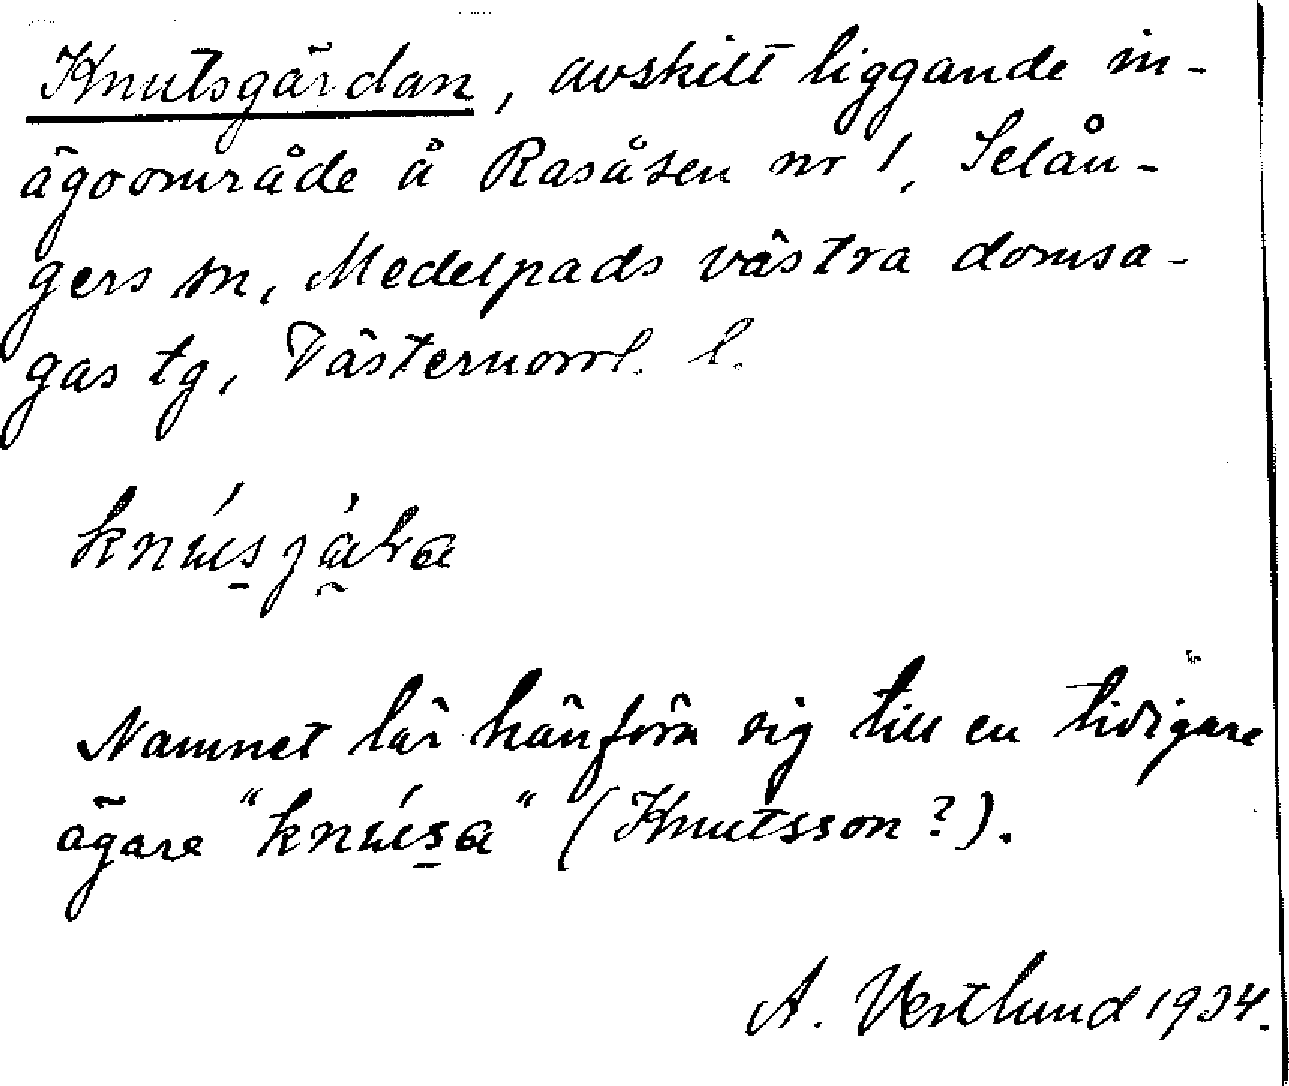 Knutsgärdan, avskilt liggande in-
ägoområde å Rasåsen nr 1, Selån-
gers sn, Medelpads västra domsa-
gas tg, Västernorrl. l.
Namnet lär hänföra sig till en tidigare
ägare "knúsa" (Knutsson?).
A. Vestlund 1934.